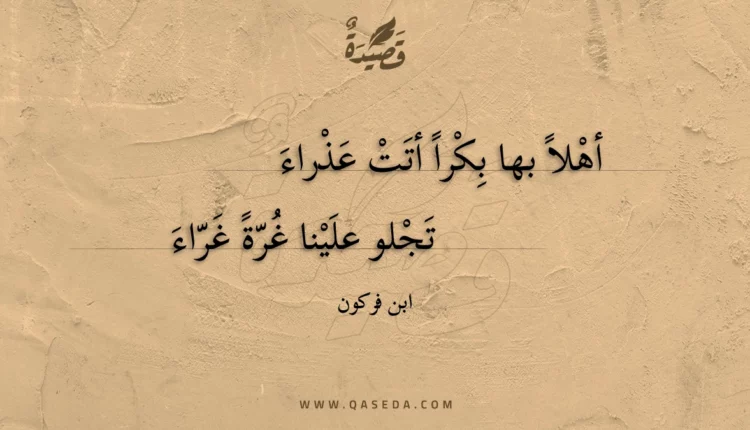 قَصِيْدَةٌ
أهْلاً بها بِكْراً أتَتْ عَذْراءَ
تَجْلو علَيْنا غُرّةً غَرّاءَ
ابن فركون
WWW.QASEDA.COM